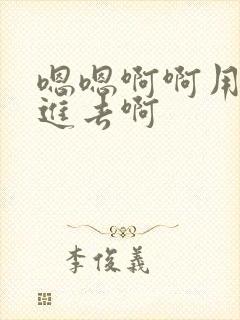 嗯嗯啊啊用
進去啊
李俊義